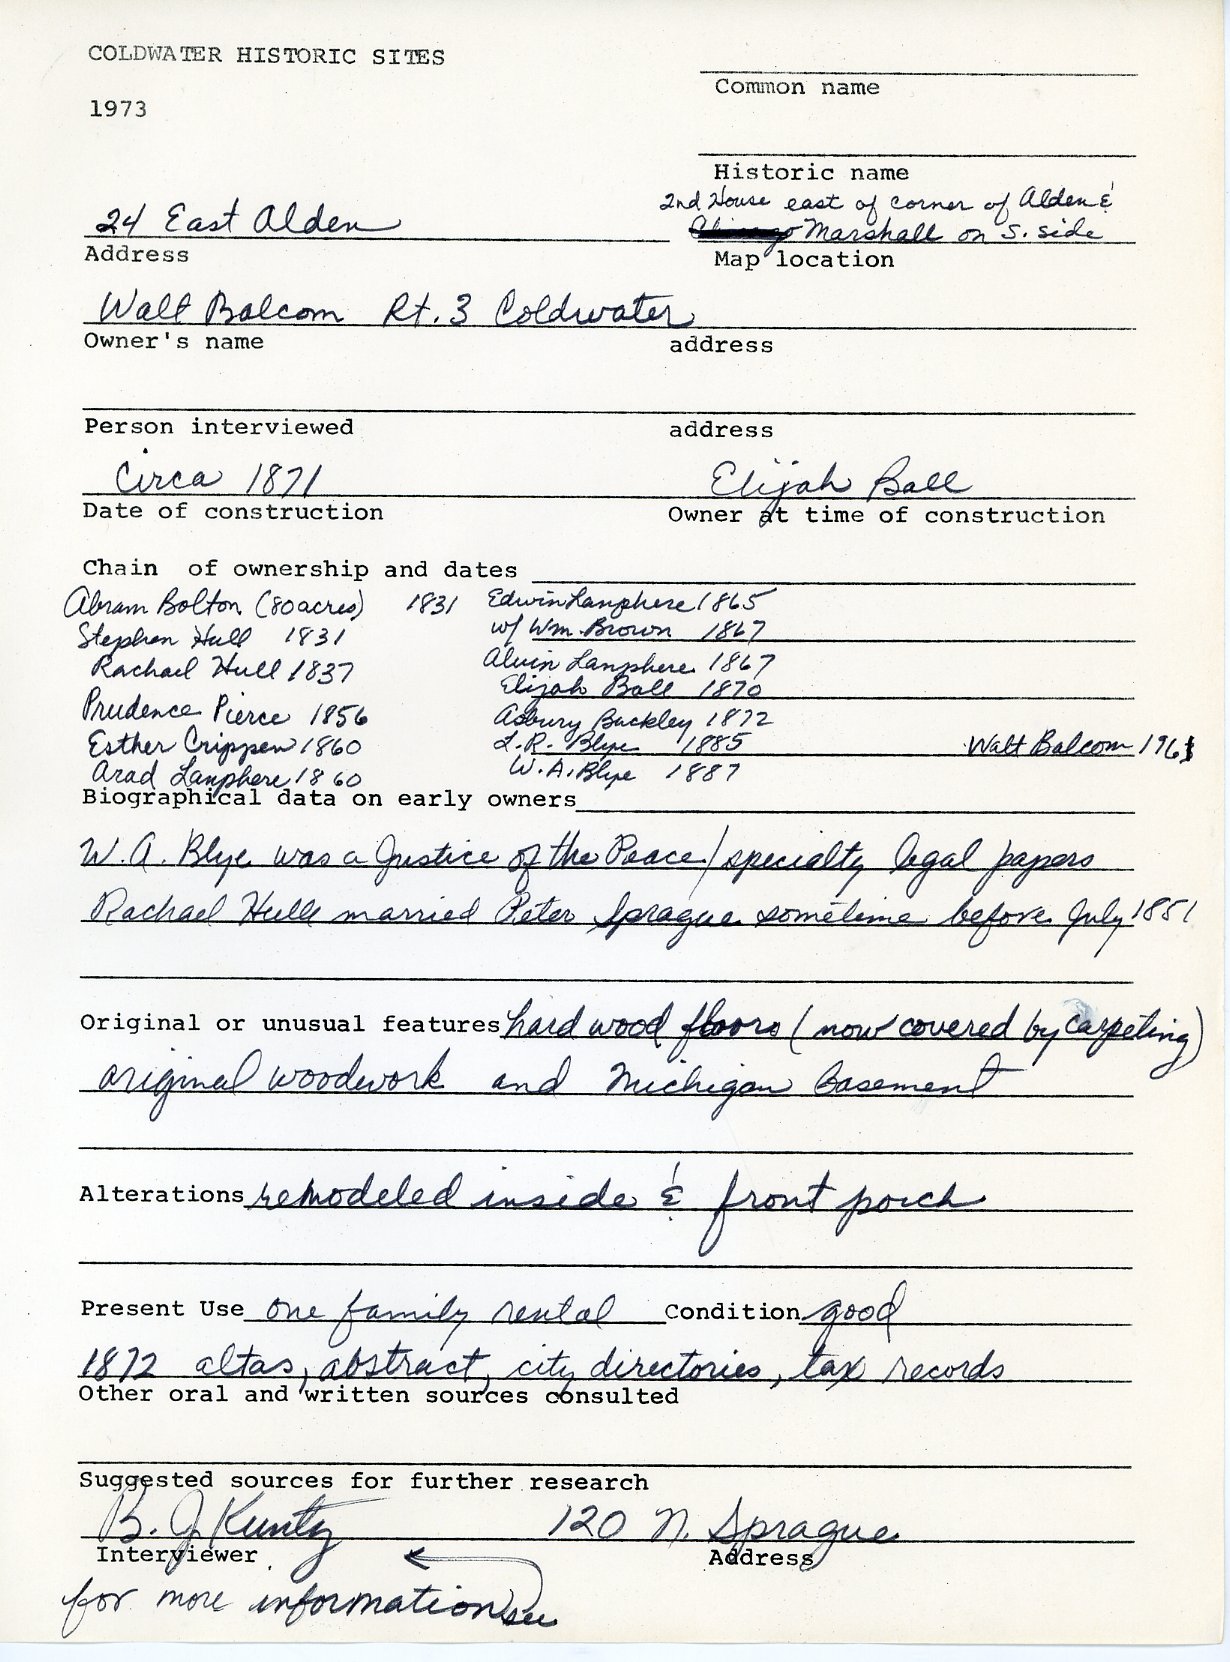 COLDWATER HISTORIC SITES
Common name
1973
Historic name
2nd House east of corner of Alden &
24 East Alden
Marshall on S. side
Address
Map location
Walt Balcom Rt. 3 Coldwater
Owner's name address
Person interviewed address
Circa 1871 Elijah Ball
Date of construction Owner at time of construction
Chain of ownership and dates
Abram Bolton (80 acres) 1831 Edwin Lanphere 1865
Stephen Hull 1831 w/ Wm. Brown 1867
Rachael Hull 1837 Alvin Lanphere 1867
Elijah Ball 1870
Prudence Pierce 1856 Asbury Buckley 1872
Esther Crippen 1860 L. R. Blye 1885 Walt Balcom
Arad Lanphere 1860 W. A. Blye 1887
Biographical data on early owners
W. A. Blye was a Justice of the Peace / specialty legal papers
Rachael Hull married Peter Sprague sometime before July 1851
Original or unusual features hard wood floors (now covered by carpeting)
original woodwork and Michigan basement
Alterations remodeled inside & front porch
Present Use one family rental Condition good
1872 altas, abstract, city directories, tax records
Other oral and written sources consulted
Suggested sources for further research
B. J. Kuntz 120 N. Sprague
Interviewer Address
for more information see